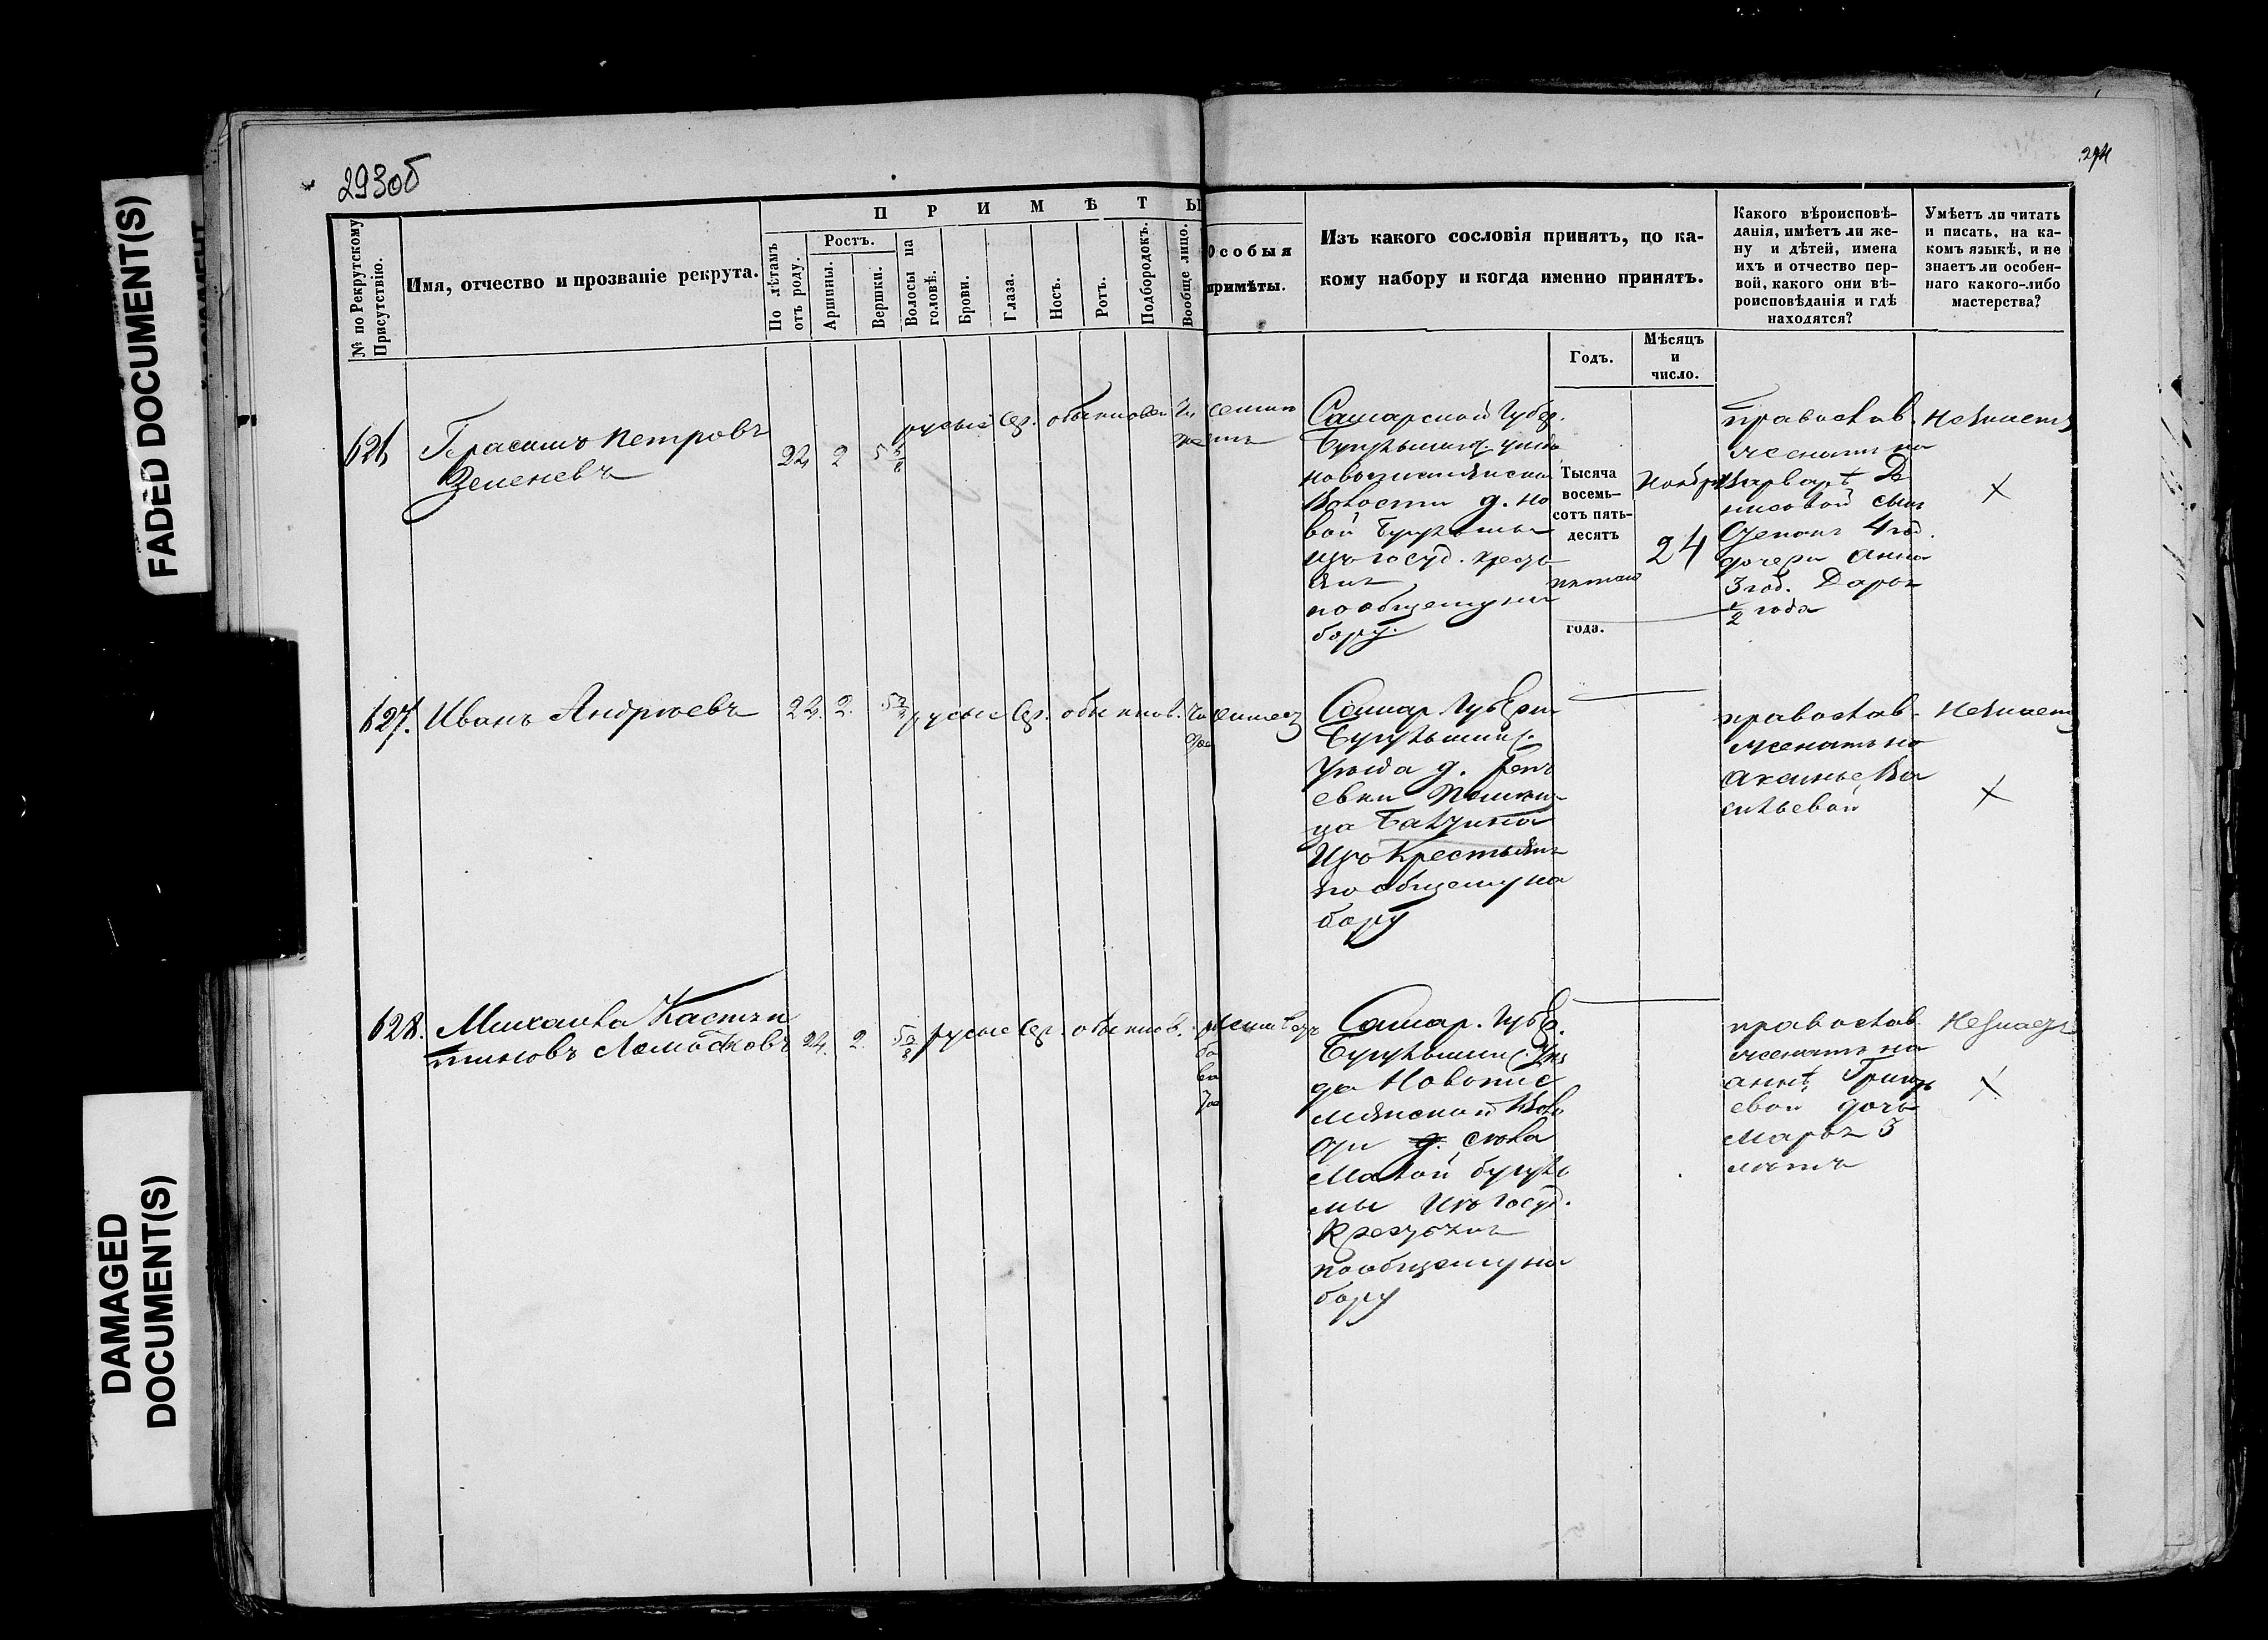 FADED DOCUMENT(S)
DAMAGED
DOCUMENT(S)
293об
294
№ по Рекрутскому
Присутствію.
Имя, отчество и прозваніе рекрута.
ПРИМѢТЫ
По лѣтамъ
отъ роду.
Ростъ.
Аршины.
Вершки.
Волосы на
головѣ.
Брови.
Глаза.
Носъ.
Ротъ.
Подбородокъ.
Вообще лицо.
Особыя
примѣты.
Изъ какого сословія принятъ, по ка-
кому набору и когда именно принятъ.
Годъ.
Мѣсяцъ
и
число.
Какого вѣроисповѣ-
данія, имѣетъ ли же-
ну и дѣтей, имена
ихъ и отчество пер-
вой, какого они вѣ-
роисповѣданія и гдѣ
находятся?
Умѣетъ ли читать
и писать, на ка-
комъ языкѣ, и не
знаетъ ли особен-
наго какого-либо
мастерства?
626
Герасимъ Петровъ
22 2 5
русые сер. обыкновен
Самарской Губер.
Бугульминс. уезда
Волости д. Но
вой Бугульмы
изъ госуд. кресть
янъ
по общему на
бору.
Тысяча
восемь-
сотъ пять-
десятъ
пятаго
года.
Ноября
24
православ.
женатъ на
Варварѣ Де
нисовой сынъ
Степанъ 4 год.
дочери Анна
3 год. Дарья
½ года
незнаетъ
×
627. Иванъ Андреевъ
22. 2. русые сер. обыкнов.
Самар Губерн
Бугульминс.
Уезда д.
изъ крестьянъ
по общему на
бору
православ.
женатъ на
Аксинье Ва
сильевой
незнаетъ
×
628. Михаила Кастен
тиновъ
22. 2. русые сер. обыкнов.
Самар. Губер.
Бугульминс. Уез
да Новопис
мянской Воло
сти д. села
Малой бугуль
мы изъ госуд.
Крестьянъ
по общему на
бору
православ
женатъ на
аннѣ Григорь
евой дочь
Марья 3
летъ
незнаетъ
×